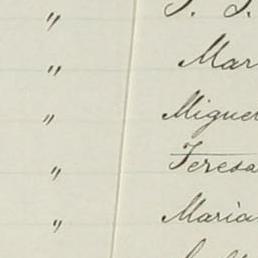 " J. J.
" Mar
" Miguel
" Teresa
" Maria
"